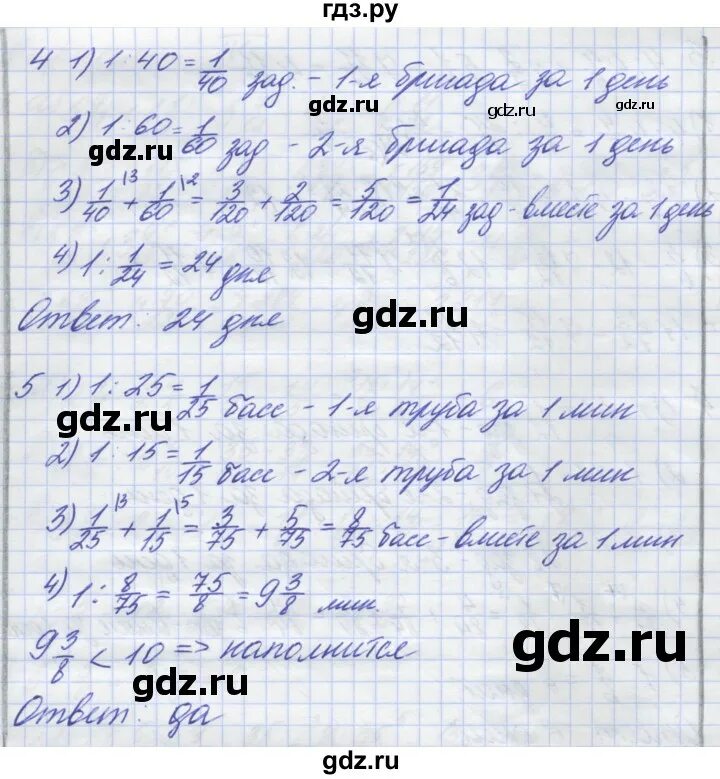 гдз.ру
4 1) 1:40 = 1/40 зад. - 1-я бригада за 1 день
gdz.ru
gdz.ru
2) 1:60 = 1/60 зад - 2-я бригада за 1 день
gdz.ru
3) 1/40 |3 + 1/60 |2 = 3/120 + 2/120 = 5/120 = 1/24 зад - вместе за 1 день
4) 1 : 1/24 = 24 дня
Ответ: 24 дня
gdz.ru
5 1) 1:25 = 1/25 басс - 1-я труба за 1 мин
gdz.ru
2) 1:15 = 1/15 басс - 2-я труба за 1 мин
3) 1/25 |3 + 1/15 |5 = 3/75 + 5/75 = 8/75 басс - вместе за 1 мин
4) 1 : 8/75 = 75/8 = 9 3/8 мин.
9 3/8 < 10 => наполнится
gdz.ru
gdz.ru
Ответ: да
gdz.ru